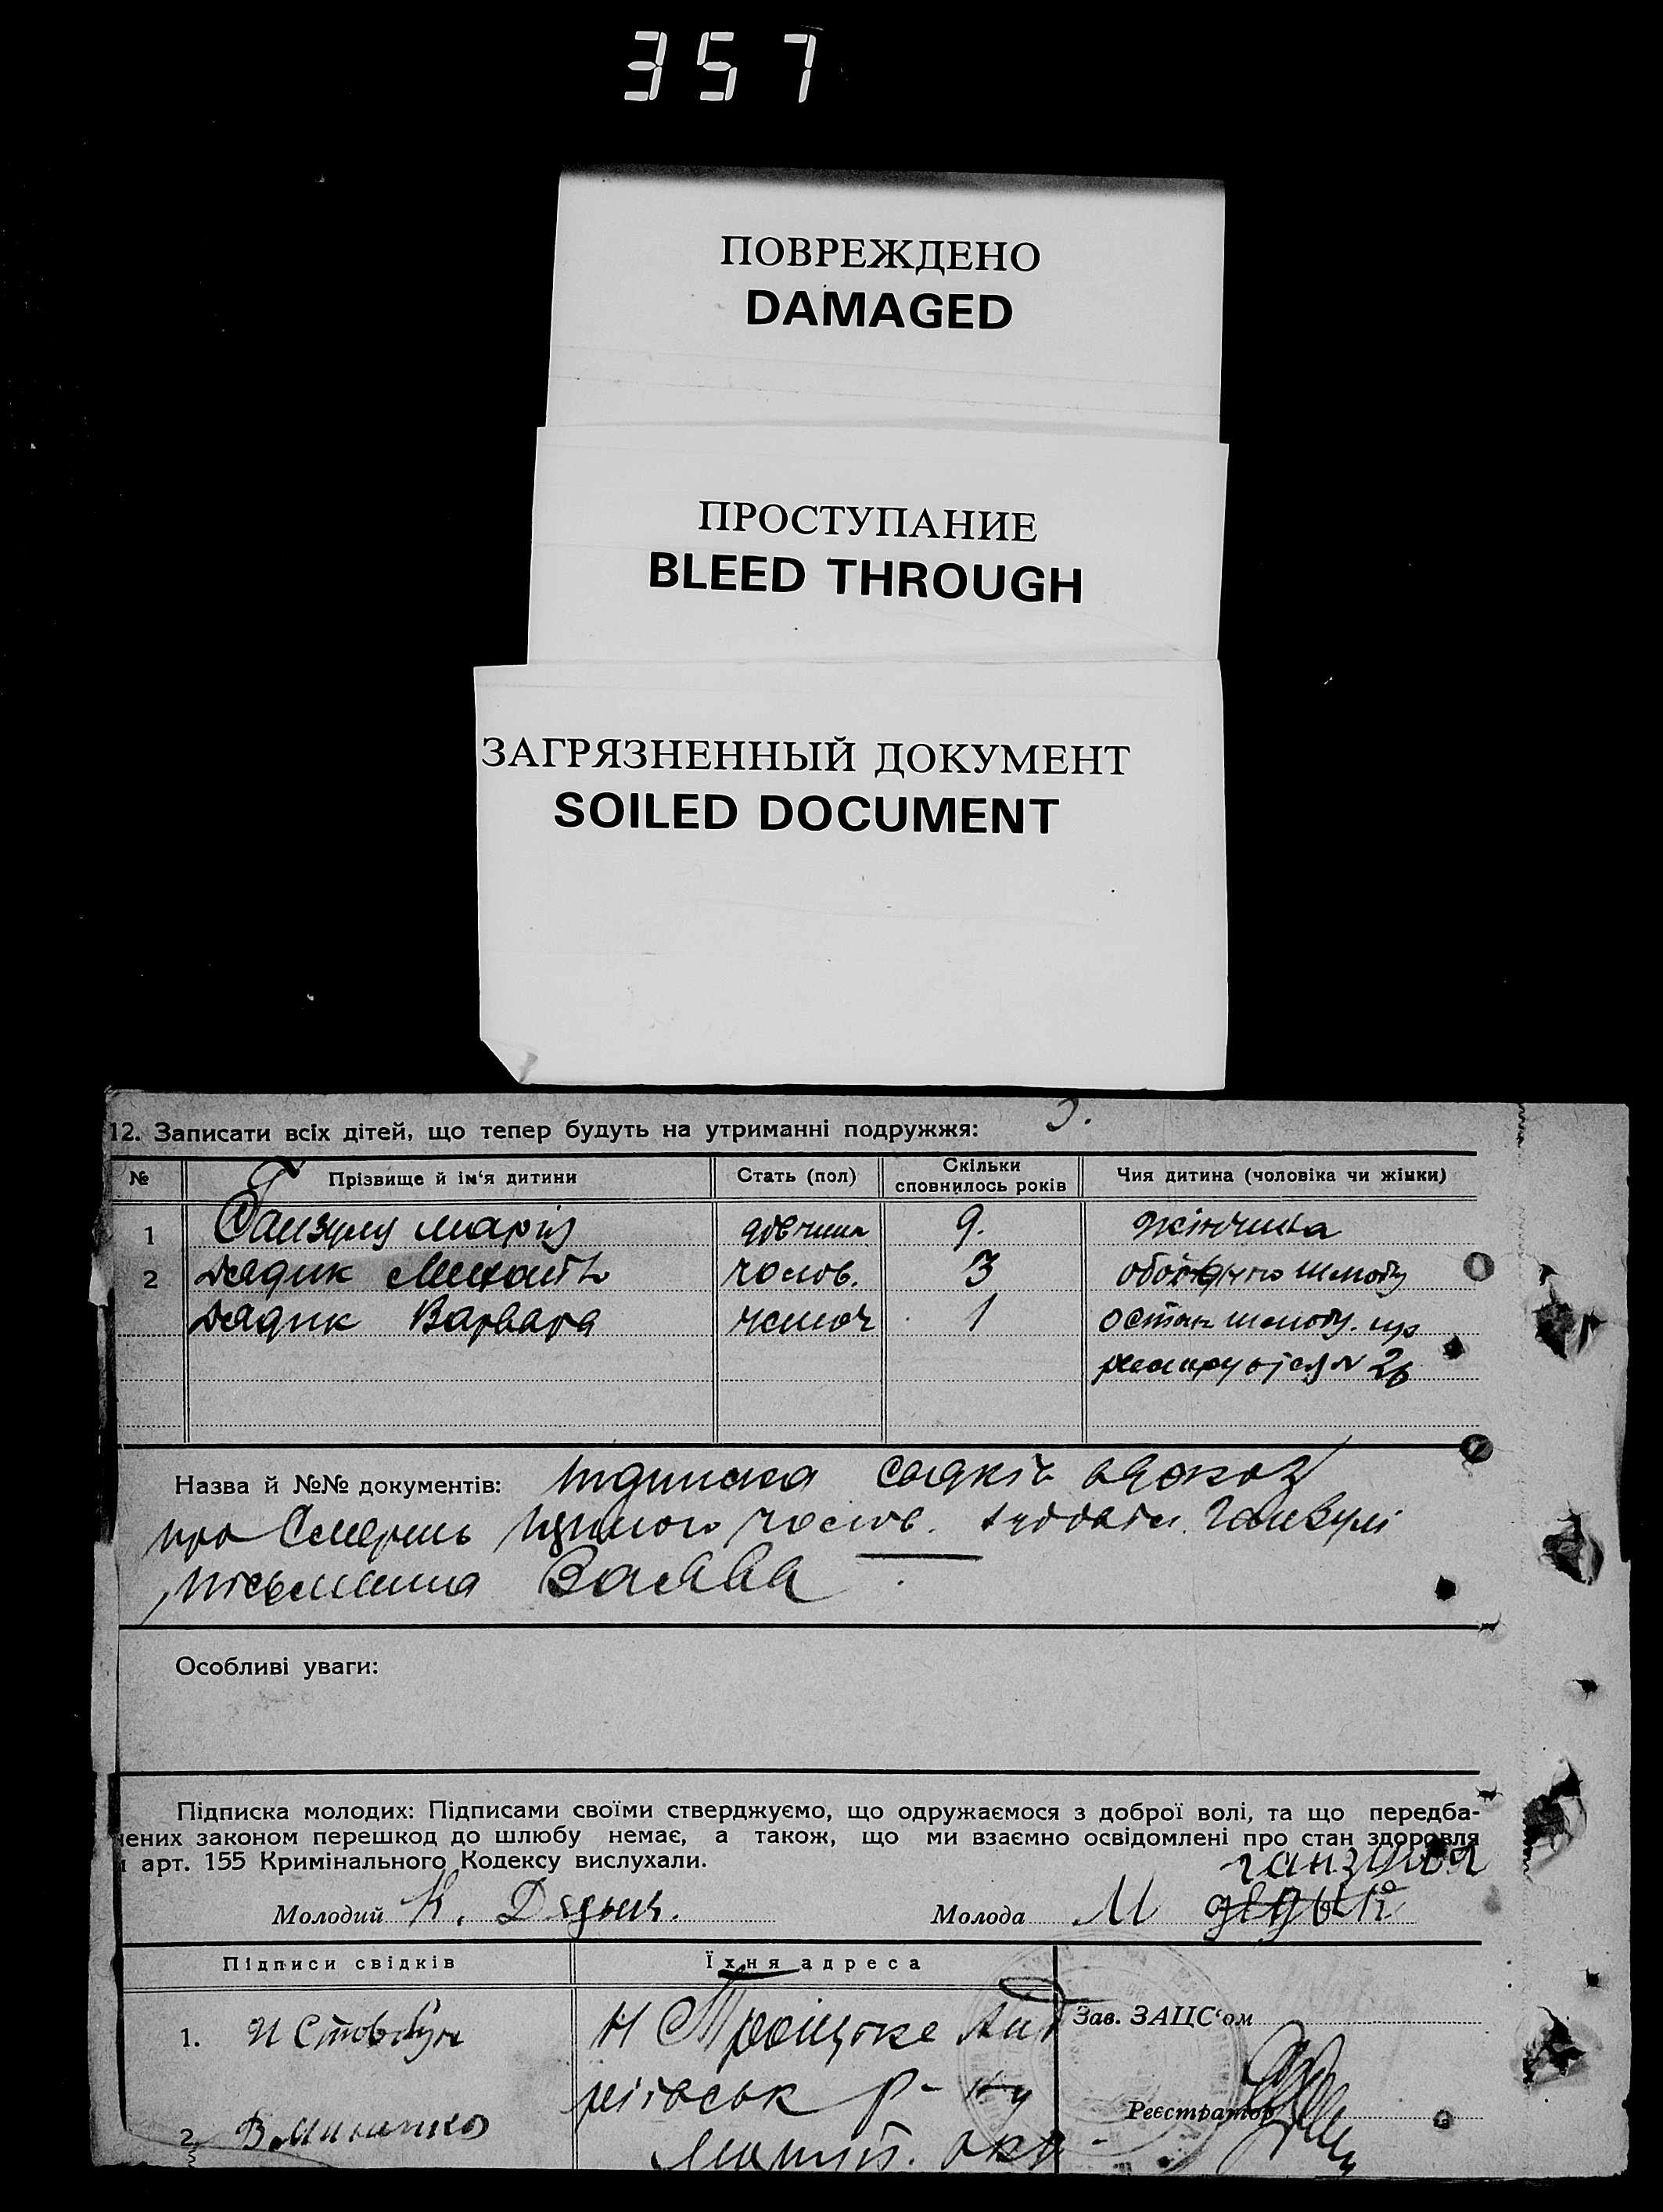 357
ПОВРЕЖДЕНО
DAMAGED
ПРОСТУПАНИЕ
BLEED THROUGH
ЗАГРЯЗНЕННЫЙ ДОКУМЕНТ
SOILED DOCUMENT
12. Записати всіх дітей, що тепер будуть на утриманні подружжя: 3.
№ Прізвище й ім'я дитини Стать (пол) Скільки сповнилось років Чия дитина (чоловіка чи жінки)
1 Марія 9. жінчина
2 Дядик чолов. 3 шлюбу
Дядик Варвара жіноч 1 остан шлюбу. що
№ 26
Назва й №№ документів: підписка
про смерть чолов. Ганзулі
письменна Заява
Особливі уваги:
Підписка молодих: Підписами своїми стверджуємо, що одружаємося з доброї волі, та що передба-
чених законом перешкод до шлюбу немає, а також, що ми взаємно освідомлені про стан здоровля
й арт. 155 Кримінального Кодексу вислухали.
ганзуля
Молодий К. Молода М
Підписи свідків Їхня адреса
Зав. ЗАЦС'ом
1. И Стовбун Н Троіцьке
р-ну
Реєстратор
2. В.